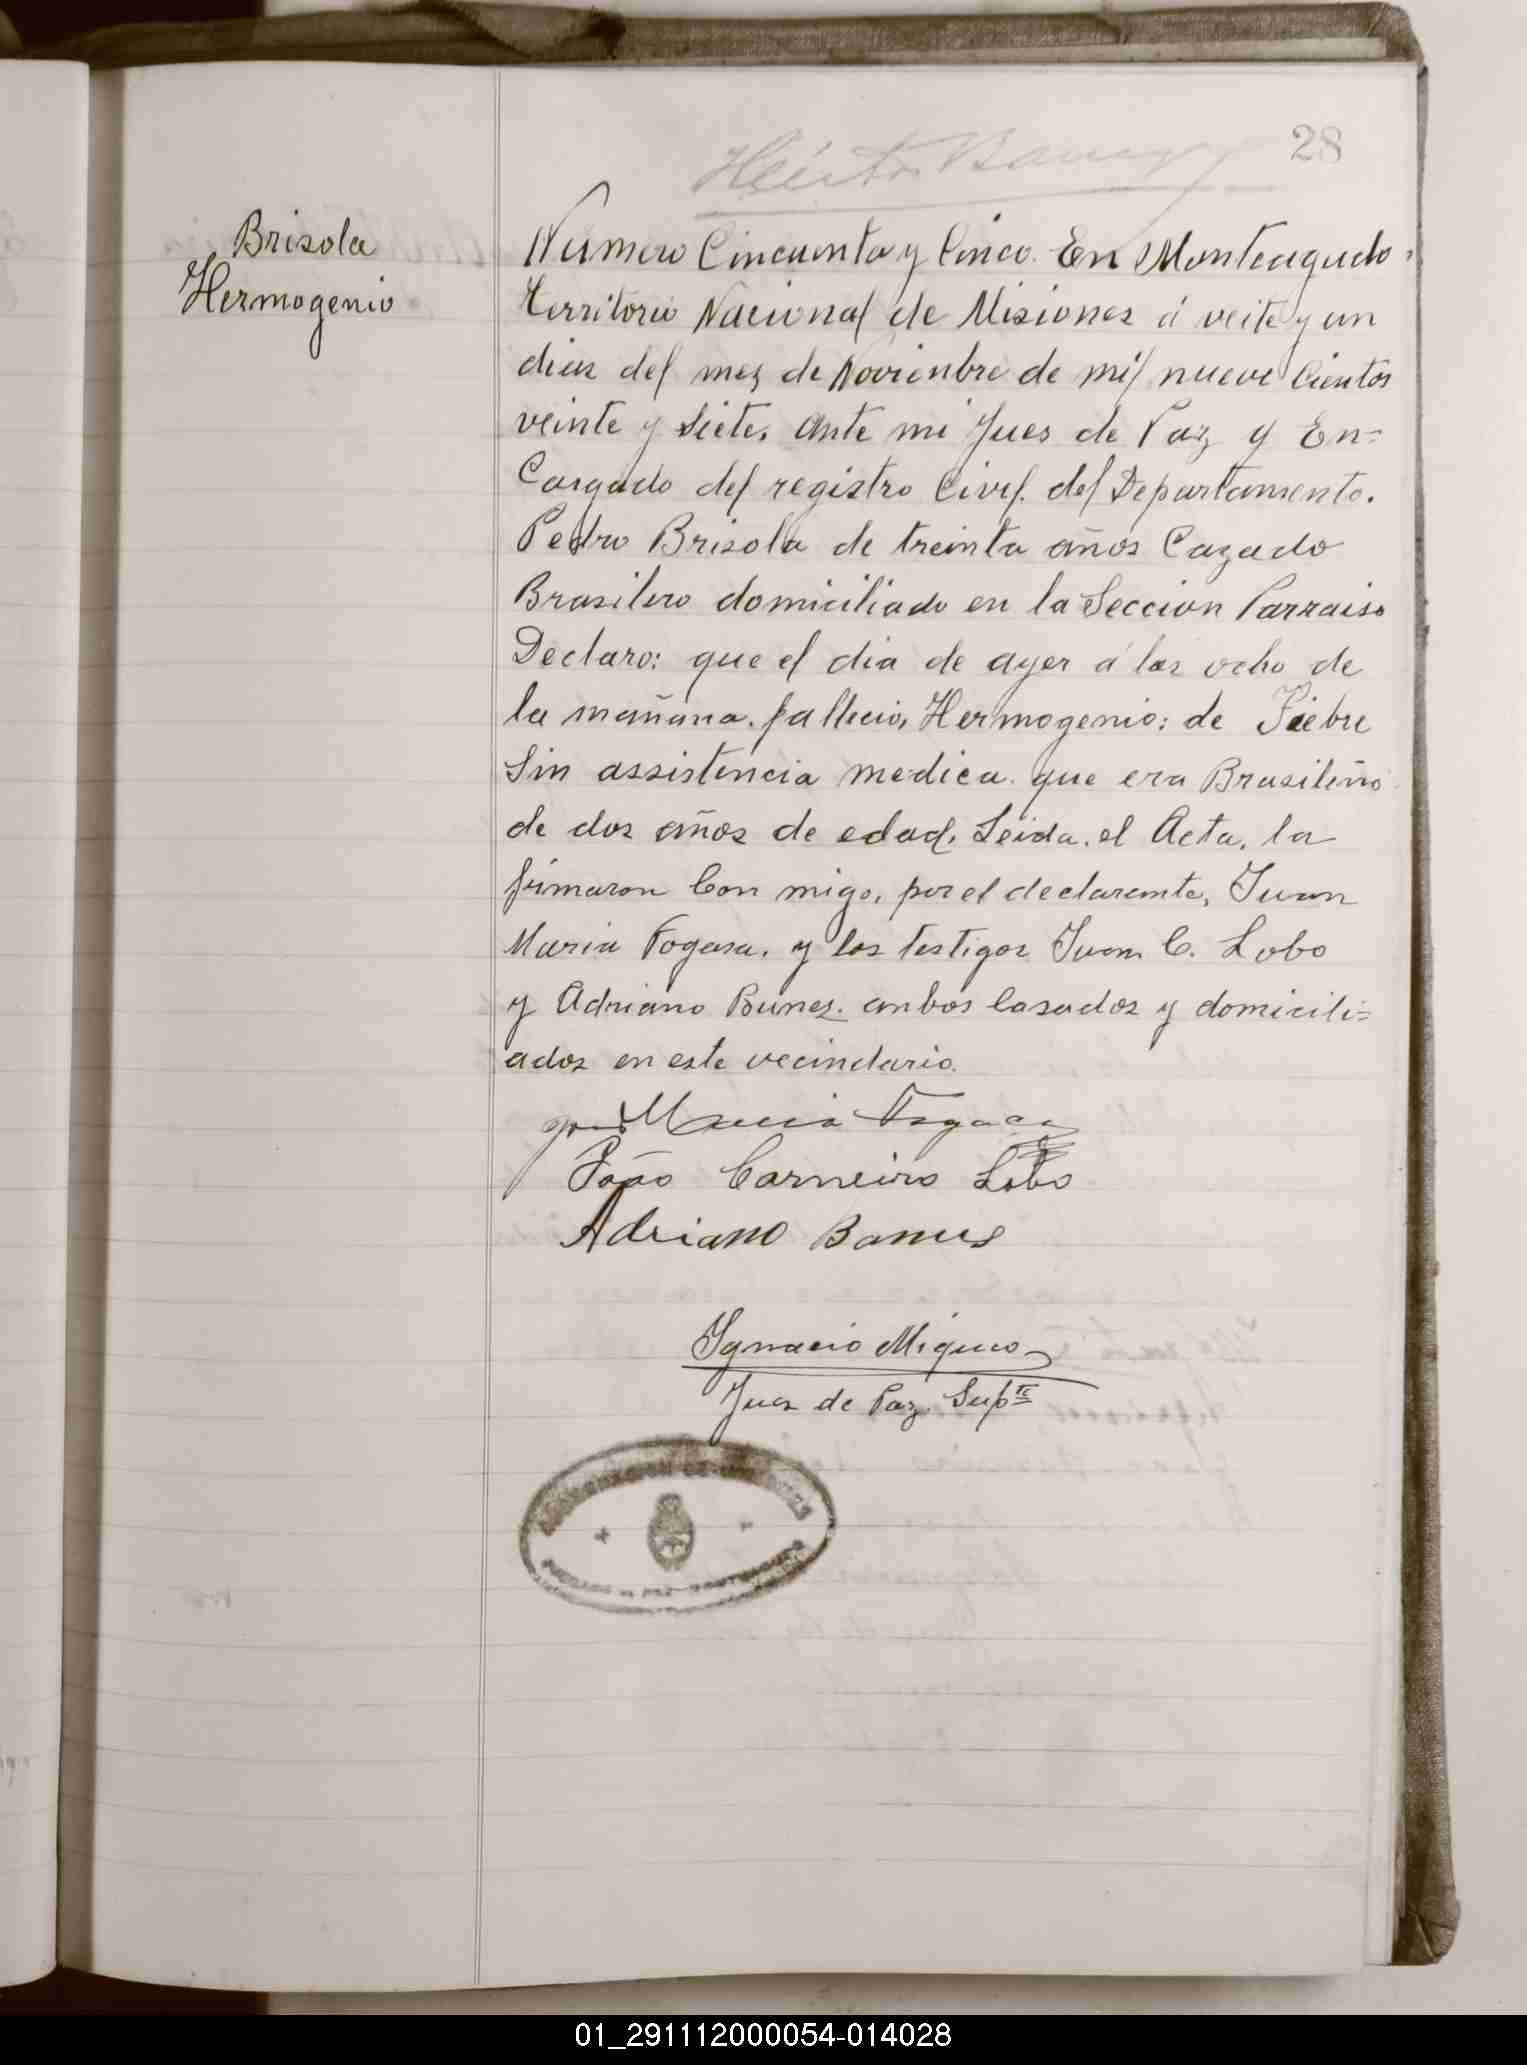 28
Brisola
Hermogenio
Numero Cincuenta y Cinco. En Monteagudo
territorio Nacional de Misiones á veite y un
dias del mes de Novienbre de mil nueve Cientos
veinte y siete. ante mi Jues de Paz y En=
Cargado del registro Civil. del Departamento.
Pedro Brisola de treinta años Cazado
Brasilero domiciliado en la Seccion Parraiso
Declaro: que el dia de ayer á las ocho de
la mañana. fallecio, Hermogenio: de Fiebre
Sin assistencia medica. que era Brasileño
de dos años de edad. Leida. el Acta, la
firmaron Con migo, por el declarante, Juan
Maria Fogasa. y los testigos Juan C. Lobo
y Adriano Bunes. anbos Casados y domicili=
ados en este vecindario.
Maria Fogaca
João Carneiro Lobo
Adriano Bonues
Ignacio Migueo
Juez de Paz Sup.te
01_291112000054-014028